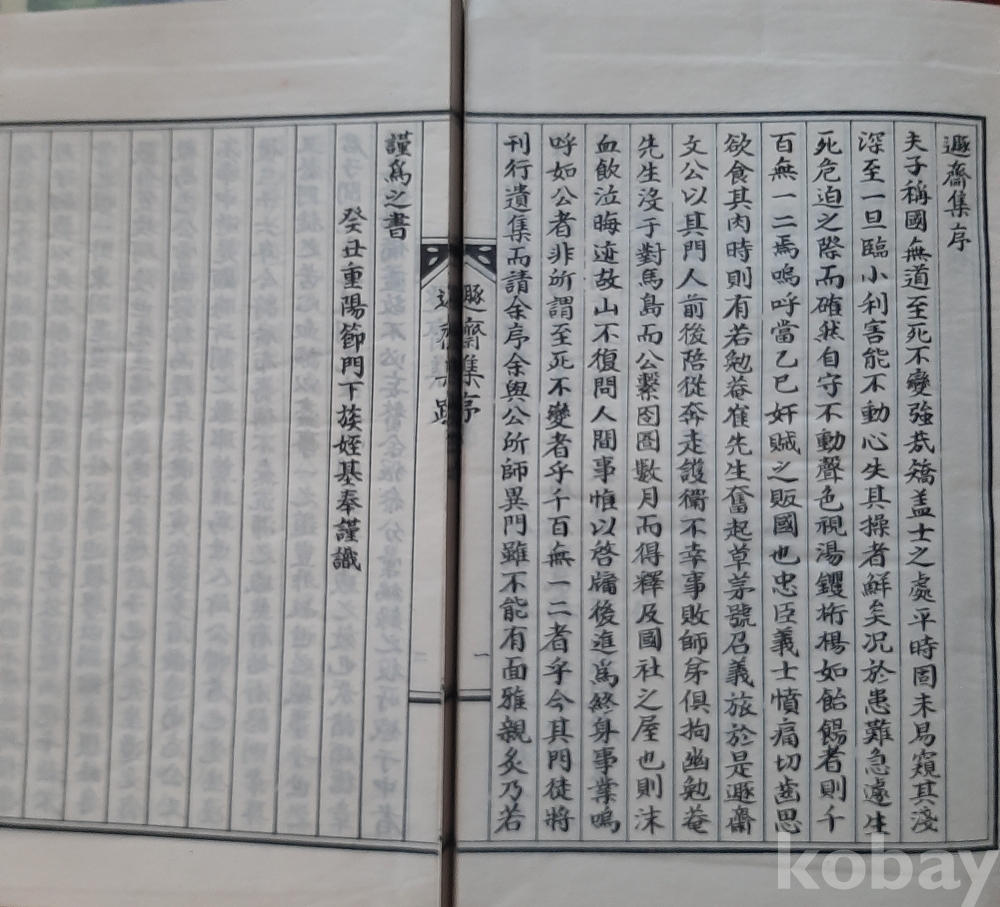 遯齋集序
夫子稱國無道至死不變強哉矯盖士之處平時固未易窺其淺
深至一旦臨小利害能不動心失其操者鮮矣况於患難急遽生
死危迫之際而確然自守不動聲色視湯鑊桁楊如飴餳者則千
百無一二焉嗚呼當乙巳奸賊之販國也忠臣義士憤痛切齒思
欲食其肉時則有若勉菴崔先生奮起草茅號召義旅於是遯齋
文公以其門人前後陪從奔走護衛不幸事敗師弟俱拘幽勉菴
先生沒于對馬島而公繫囹圄數月而得釋及國社之屋也則沫
血飲泣晦迹故山不復問人間事惟以啓牖後進爲終身事業嗚
呼如公者非所謂至死不變者乎千百無一二者乎今其門徒將
刊行遺集而請余序余與公所師異門雖不能有面雅親炙乃若
遯齋集序
一
遯齋集跋
二
謹爲之書
癸丑重陽節門下族姪基奉謹識
kobay